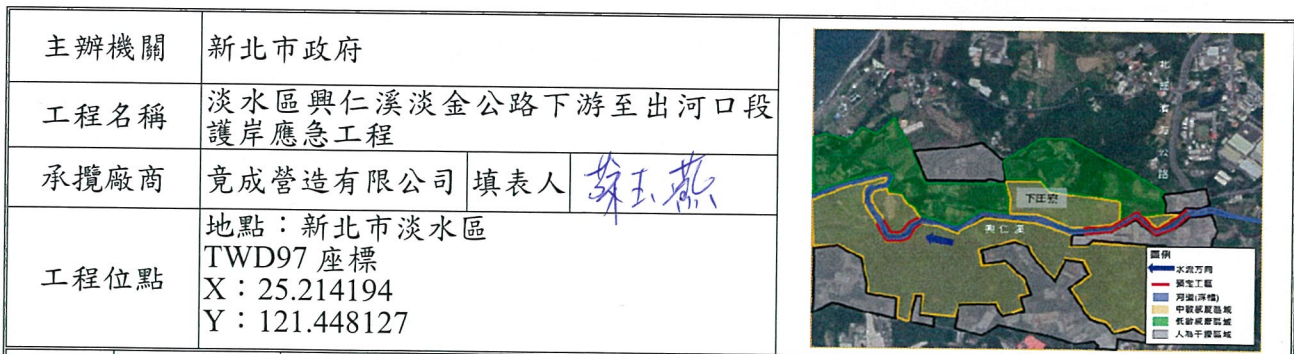 主辦機關
新北市政府
工程名稱
淡水區興仁溪淡金公路下游至出河口段
護岸應急工程
承攬廠商
竟成營造有限公司
填表人
蘇玉燕
工程位點
地點：新北市淡水區
TWD97 座標
X：25.214194
Y：121.448127
下圭柔
興仁溪
圖例
水流方向
預定工區
河道(深槽)
中敏感度區域
低敏感度區域
人為干擾區域